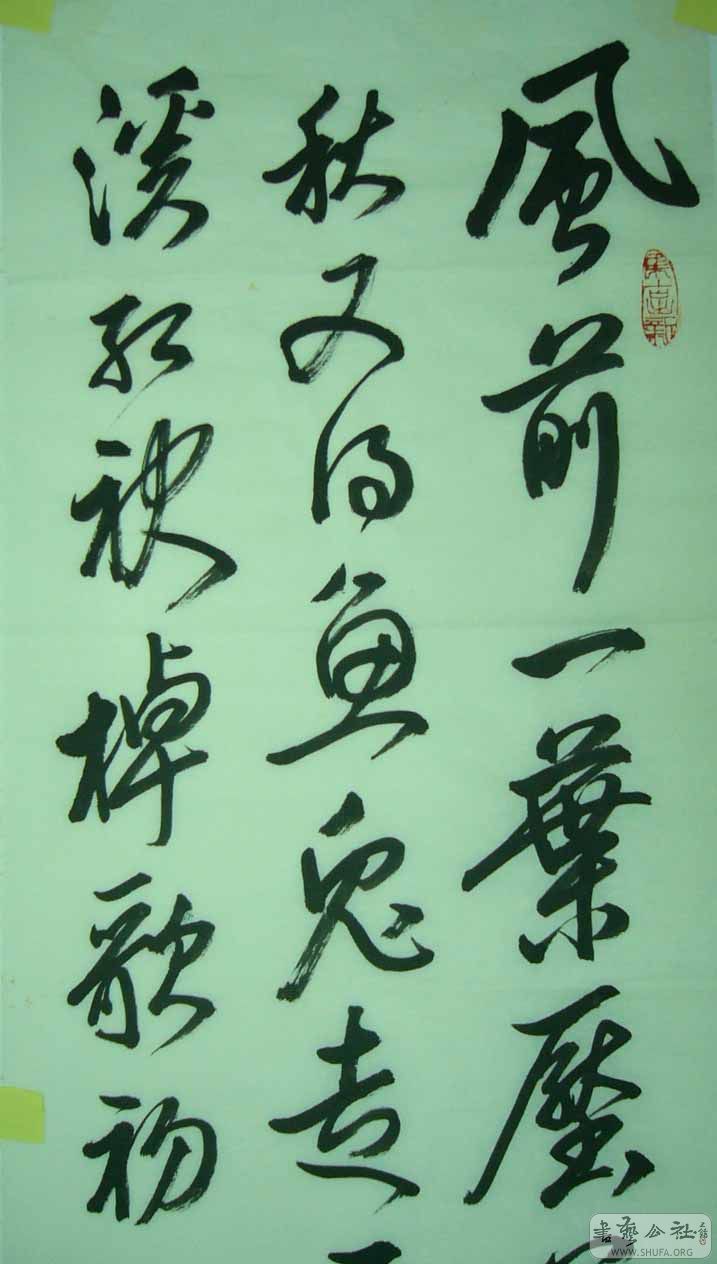 風前一葉壓
秋又得魚兔走
溪紅袂棹歌初
書藝公社
WWW.SHUFA.ORG